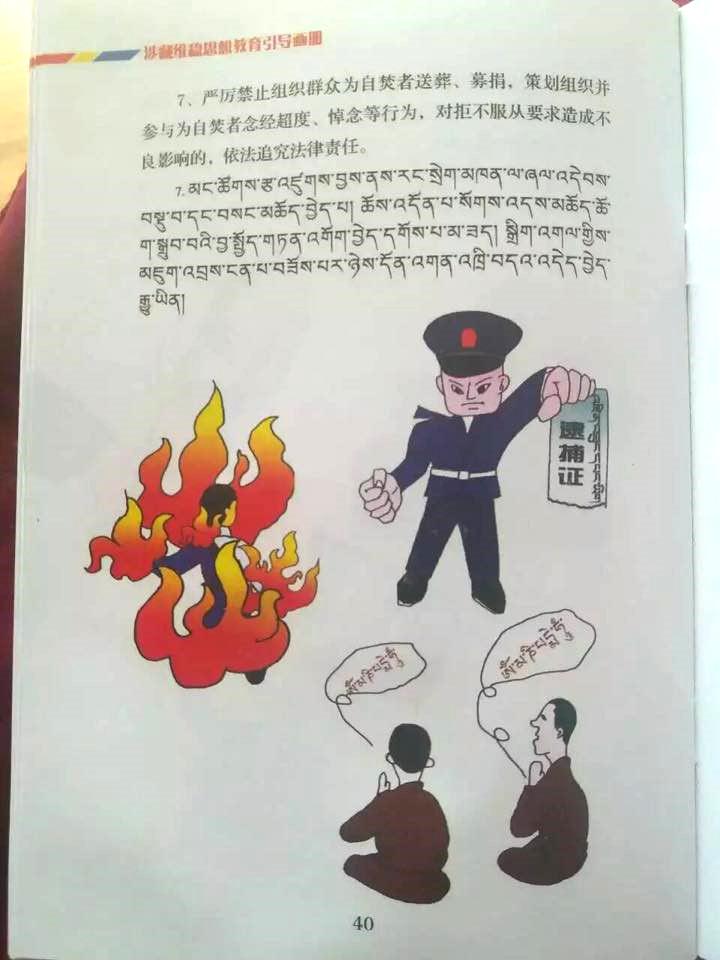 涉藏维稳思想教育引导画册
7、严厉禁止组织群众为自焚者送葬、募捐，策划组织并
参与为自焚者念经超度、悼念等行为，对拒不服从要求造成不
良影响的，依法追究法律责任。
7. མང་ཚོགས་རྩ་འཛུགས་བྱས་ནས་རང་སྲེག་མཁན་ལ་ཞལ་འདེབས་
བསྡུ་བ་དང་བསང་མཆོད་བྱེད་པ། ཆོས་འདོན་པ་སོགས་འདས་མཆོད་ཚོ
ག་སྒྲུབ་བའི་བྱ་སྤྱོད་གཏན་འགོག་བྱེད་དགོས་པ་མ་ཟད། སྒྲིག་འགལ་གྱིས་
མཇུག་འབྲས་ངན་པ་བཟོས་པར་ཉེས་དོན་འགན་འཁྲི་བདའ་འདེད་བྱེད་
རྒྱུ་ཡིན།
逮捕证
ༀ་མ་ཎི་པདྨེ་ཧཱུྃ
ༀ་མ་ཎི་པདྨེ་ཧཱུྃ
40